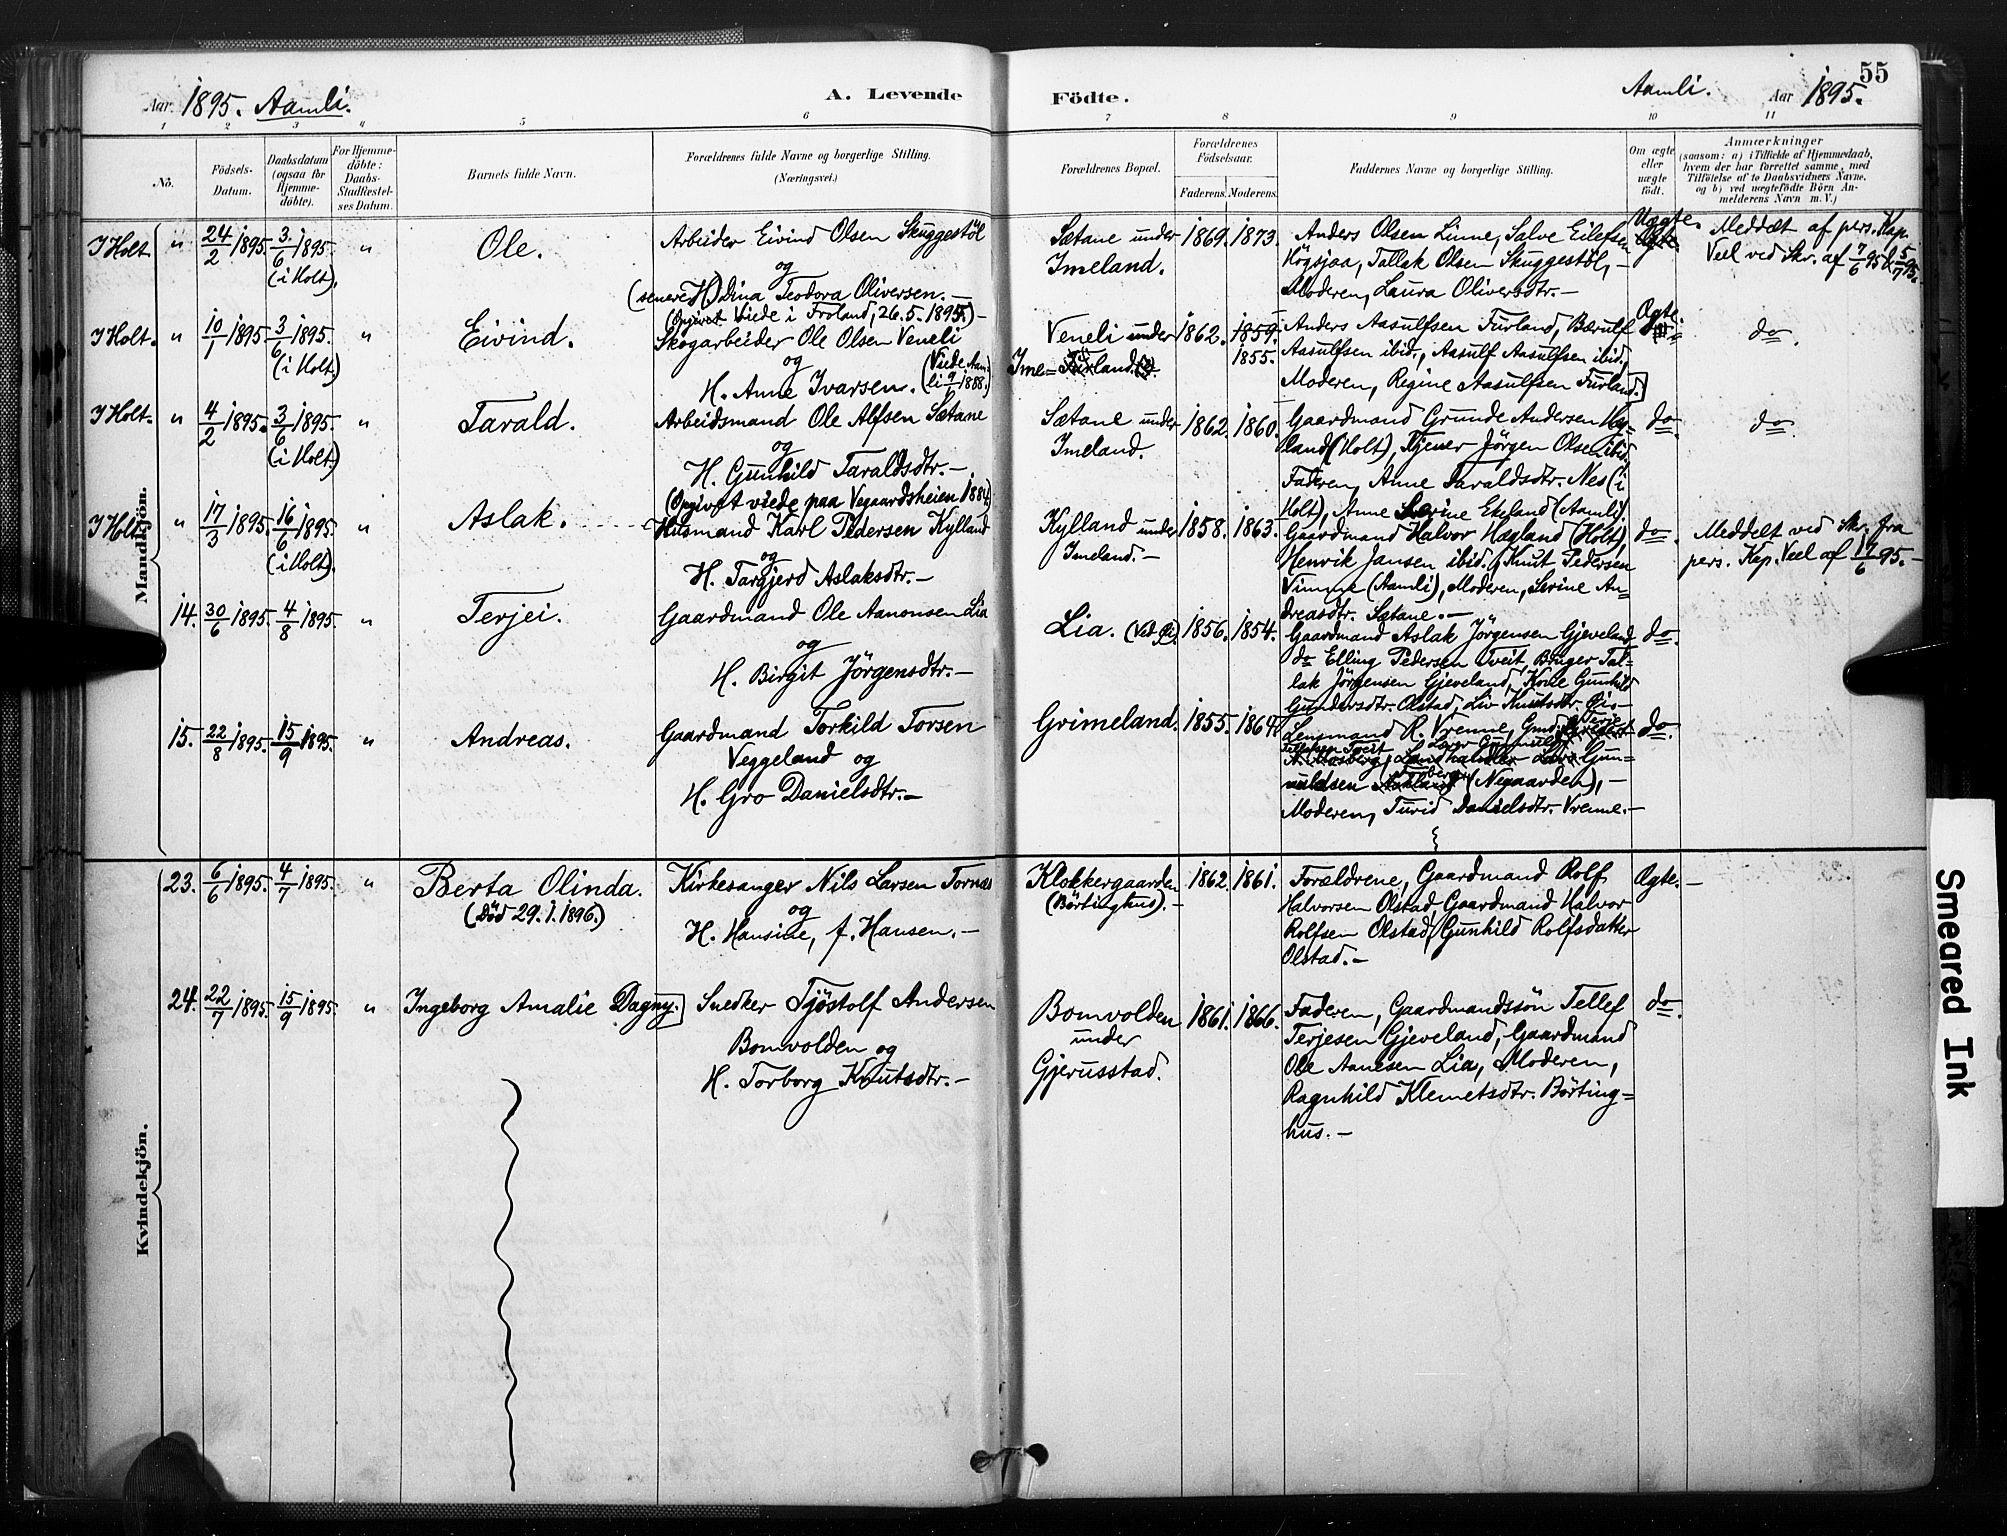 55
Aar 1895. Aamli.
A. Levende
Födte.
Aamli.
Aar 1895.
1 2 3 4 5 6 7 8 9 10 11
No.
Födsels-
Datum.
Daabsdatum
(ogsaa for
Hjemme-
döbte).
For Hjemme-
döbte:
Daabs-
Stadfæstel-
ses Datum.
Barnets fulde Navn.
Forældrenes fulde Navne og borgerlige Stilling.
(Næringsvei.)
Forældrenes Bopæl.
Forældrenes
Födselsaar.
Faderens. Moderens.
Faddernes Navne og borgerlige Stilling.
Om ægte
eller
uægte
födt.
Anmærkninger
(saasom: a) i Tilfælde af Hjemmedaab,
hvem der har forrettet samme, med
Tilföielse af to Daabsvidners Navne,
og b) ved uægtefödte Börn An-
melderens Navn m. V.)
Mandkjön.
I Holt. " 24/2 1895. 3/6 1895. (i Holt). "
Ole.
Arbeider Eivind Olsen Skuggestöl
og
(senere H.) Dina Teodora Oliversen. —
(Opgivet Viede i Froland, 26.5.1895.) —
Sætane under
Imeland.
1869. 1873.
Anders Olsen Linne, Salve Eilefsen
Högsjaa, Tallak Olsen Skuggestöl, —
Moderen, Laura Oliversdtr. —
Uægte.
Meddelt af pers. Kap.
Veel ved Skr. af 7/6 95 & 5/7 95.
I Holt. " 10/1 1895. 3/6 1895. (i Holt) "
Eivind.
Skogarbeider Ole Olsen Veneli
og
H. Anne Ivarsen. (Viede Aam-
li 9/1 1888.)
Veneli under
Ime-
1862. 1859.
1855.
Anders Aasulfsen Furland, Bærulf
Aasulfsen ibid., Aasulf Aasulfsen ibid.
Moderen, Regine Aasulfsen Furland.
Ægte.
do.
I Holt. " 4/2 1895. 3/6 1895. (i Holt) "
Tarald.
Arbeidsmand Ole Alfsen Sætane
og
H. Gunhild Taraldsdtr. —
(Opgivet viede paa Vegaardsheien 1884)
Sætane under
Imeland.
1862. 1860.
Gaardmand Grunde Andersen Hög-
land (Holt), Tjener Jörgen Olsen ibid.
Faderen, Anne Taraldsdtr. Nes (i
Holt), Anne Serine Ekeland (Aamli).
do.
do.
I Holt " 17/3 1895. 16/6 1895. (i Holt). "
Aslak.
Husmand Karl Pedersen Kylland
og
H. Targjerd Aslaksdtr. —
Kylland under
Imeland. —
1858. 1863.
Gaardmand Halvor Hægland (Holt),
Henrik Jansen ibid., Knut Pedersen
Vimme (Aamli), Moderen, Serine An-
dreasdtr. Sætane. —
do.
Meddelt ved Skr. fra
pers. Kap. Veel af 17/6 95. —
14. 30/6 1895. 4/8 1895. "
Terjei.
Gaardmand Ole Aanonsen Lia
og
H. Birgit Jörgensdtr. —
Lia.
1856. 1854.
Gaardmand Aslak Jörgensen Gjeveland
do Elling Pedersen Tveit, Bruger Tal-
lak Jörgensen Gjeveland, Kone Gunhild
Gundersdtr. Olstad, Liv Knutsdtr.
do.
15. 22/8 1895. 15/9 1895. "
Andreas.
Gaardmand Torkild Torsen
Veggeland og
H. Gro Danielsdtr. —
Grimeland.
1855. 1864.
Lensmand R. Vrenne, Gmd. Terje
Tellefsen Tveit, Gun-
nuldsen (Negaarden), —
Moderen, Turid Danielsdtr. Vrenne. —
do.
Kvindekjön.
23. 6/6 1895. 4/7 1895. "
Berta Olinda.
(Död 29.1.1896.)
Kirkesanger Nils Larsen Tornæs
og
H. Hansine, f. Hansen. —
Klokkergaarden
(Börtinghus). —
1862. 1861.
Forældrene, Gaardmand Rolf
Halvorsen Olstad, Gaardmand Halvor
Rolfsen Olstad, Gunhild Rolfsdatter
Olstad. —
Ægte. —
24. 22/7 1895. 15/9 1895. "
Ingeborg Amalie Dagny.
Snedker Tjöstolf Andersen
Bomvolden og
H. Torborg Knutsdtr. —
Bomvolden
under
Gjerusstad.
1861. 1866.
Faderen, Gaardmandssön Tellef
Terjesen Gjeveland, Gaardmand
Ole Aanesen Lia, Moderen,
Ragnhild Klemetsdtr. Börting-
hus. —
do.
Smeared Ink